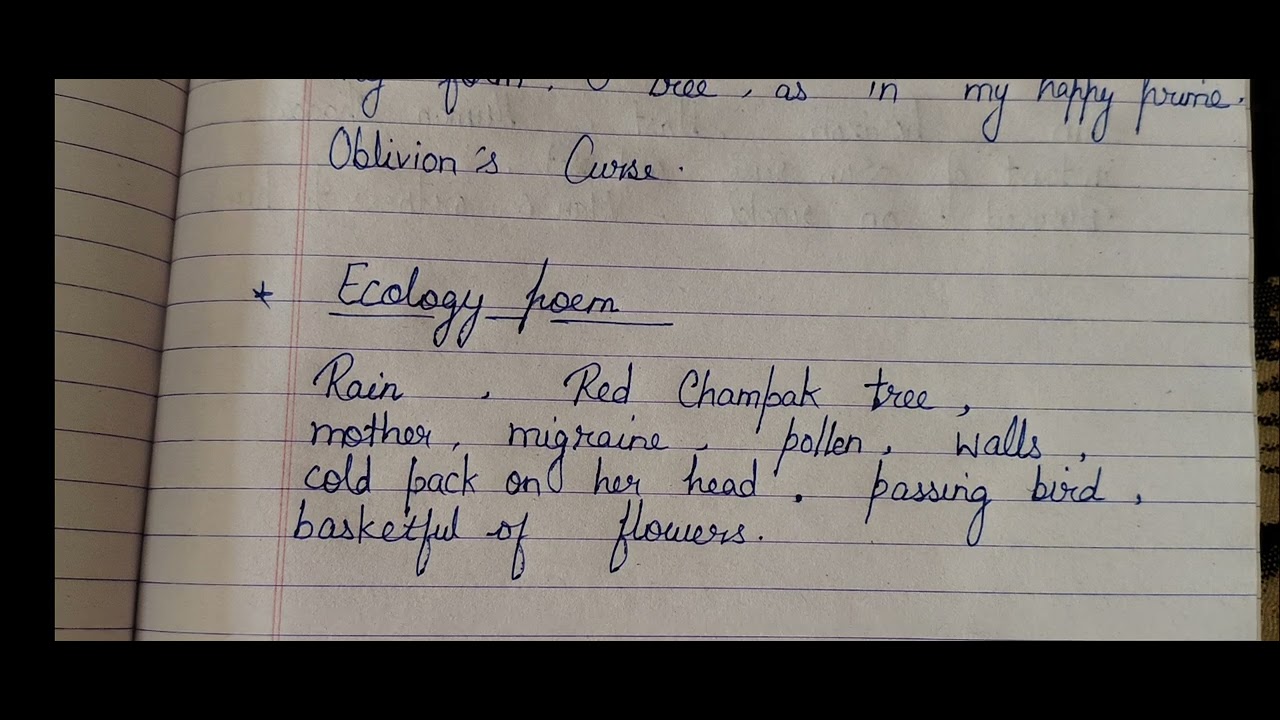 my form, O tree, as in my happy prime.
Oblivion's Curse.
* Ecology poem
Rain, Red Champak tree,
mother, migraine, pollen, walls,
cold pack on her head, passing bird,
basketful of flowers.